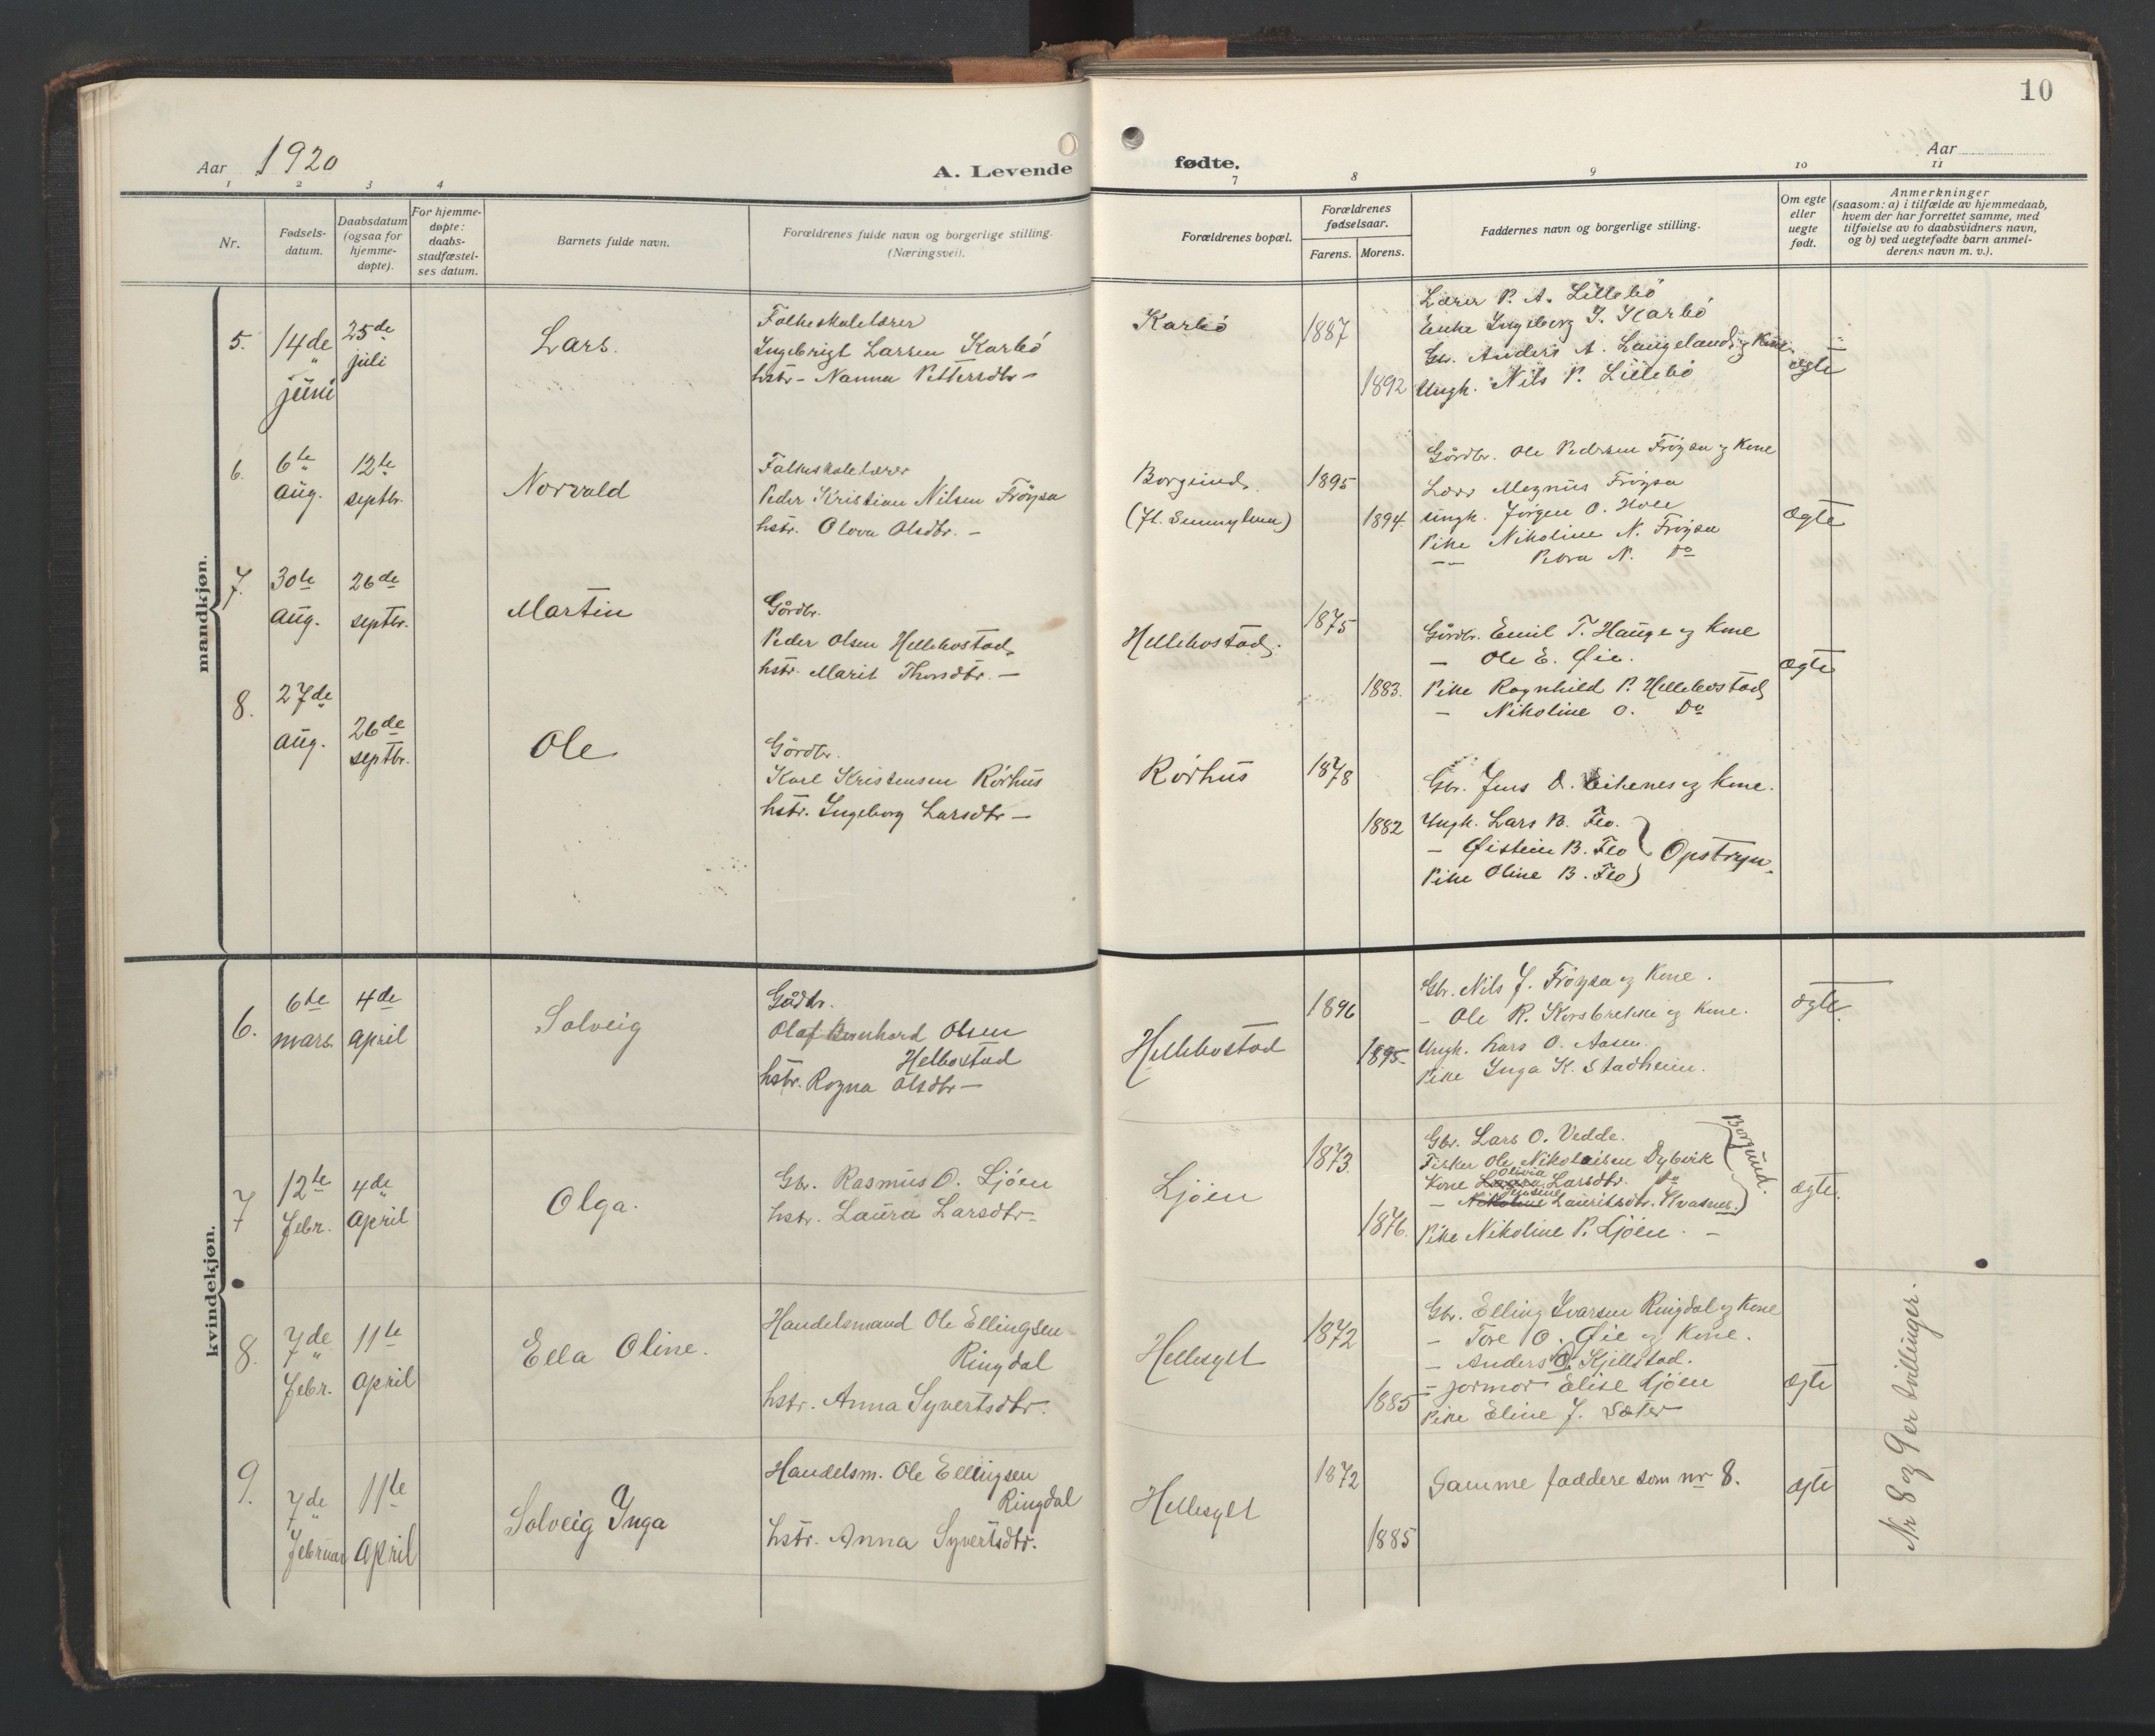 10
Aar 1920
A. Levende
fødte.
Aar
1 2 3 4
7 8 9 10 11
Nr.
Fødsels-
datum.
Daabsdatum
(ogsaa for
hjemme-
døpte).
For hjemme-
døpte:
daabs-
stadfæstel-
ses datum.
Barnets fulde navn.
Forældrenes fulde navn og borgerlige stilling.
(Næringsvei).
Forældrenes bopæl.
Forældrenes
fødselsaar.
Farens. Morens.
Faddernes navn og borgerlige stilling.
Om egte
eller
uegte
født.
Anmerkninger
(saasom: a) i tilfælde av hjemmedaab,
hvem der har forrettet samme, med
tilføielse av to daabsvidners navn,
og b) ved uegtefødte barn anmel-
derens navn m. v.).
mandkjøn.
5.
14de
juni
25de
juli
Lars.
Folkeskolelærer
Ingebrigt Larsen Karbö
hstr - Nanna Pettersdtr -
Karbö
1887
1892
Lærer P. A. Lillebö
Enke Ingeborg I. Karbö
Gbr. Anders A. Langeland og Kone
Ungk. Nils P. Lillebö
ægte
6.
6te
aug.
12te
septbr.
Norvald
Folkeskolelærer
Peder Kristian Nilsen Fröysa
hstr. Olova Olsdtr. -
Borgund
1895
1894.
Gårdbr. Ole Pedersen Fröysa og Kone
Lærer Magnus Fröysa
Ungk. Jörgen O. Hole
Pike Nikoline N. Fröysa
- Petra N. Do
ægte
7.
30te
aug.
26de
septbr.
Martin
Gårdbr.
Peder Olsen Hellebostad
hstr. Marit Thorsdtr. -
Hellebostad.
1875
1883.
Gårdbr. Emil T. Hauge og Kone
- Ole E. Øie.
Pike Ragnhild P. Hellebostad
- Nikoline O. Do
ægte
8.
27de
aug.
26de
septbr.
Ole
Gårdbr.
Karl Kristensen Rörhus
hstr. Ingeborg Larsdtr -
Rörhus
1878
1882
Gbr. Jens D. Eikenes og Kone.
Ungk. Lars B. Flo.
- Øistein B. Flo
Pike Oline B. Flo
Opstryn.
kvindekjøn.
6.
6te
mars
4de
april
Solveig
Gådbr.
Olaf Bernhard Olsen
Helbostad
hstr. Ragna Olsdtr -
Hellebostad
1896
1895-
Gbr. Nils J. Fröysa og Kone.
- Ole R. Korsbrekke og Kone.
Ungk. Lars O. Aasen.
Pike Inga K. Stadheim.
ægte.
7
12te
febr.
4de
april
Olga.
Gbr. Rasmus O. Ljöen
hstr. Laura Larsdtr-
Ljöen
1873.
1876.
Gbr. Lars O. Vedde.
Fisker Ole Nikolaisen Dybvik
Olivia
Kone Laura Larsdtr. Do
Jensine
- Nikoline Lauritsdtr. Kvasnes.
Borgund.
Pike Nikoline P. Ljöen. -
ægte.
8.
7de
febr.
11te
april
Ella Oline.
Handelsmand Ole Ellingsen
Ringdal
hstr. Anna Syvertsdtr.
Hellesylt
1872
1885
Gbr. Elling Ivarsen Ringdal og Kone
- Tore O. Øie og Kone.
- Anders O. Kjellstad.
- jormor Elise Ljöen
Pike Eline J. Sæter
ægte
9.
7de
februar
11te
april
Solveig Inga
Handelsm. Ole Ellingsen
Ringdal
hstr. Anna Syvertsdtr.
Hellesylt
1872
1885
Samme faddere som nr 8.
ægte
Nr 8 og 9 er tvillinger.